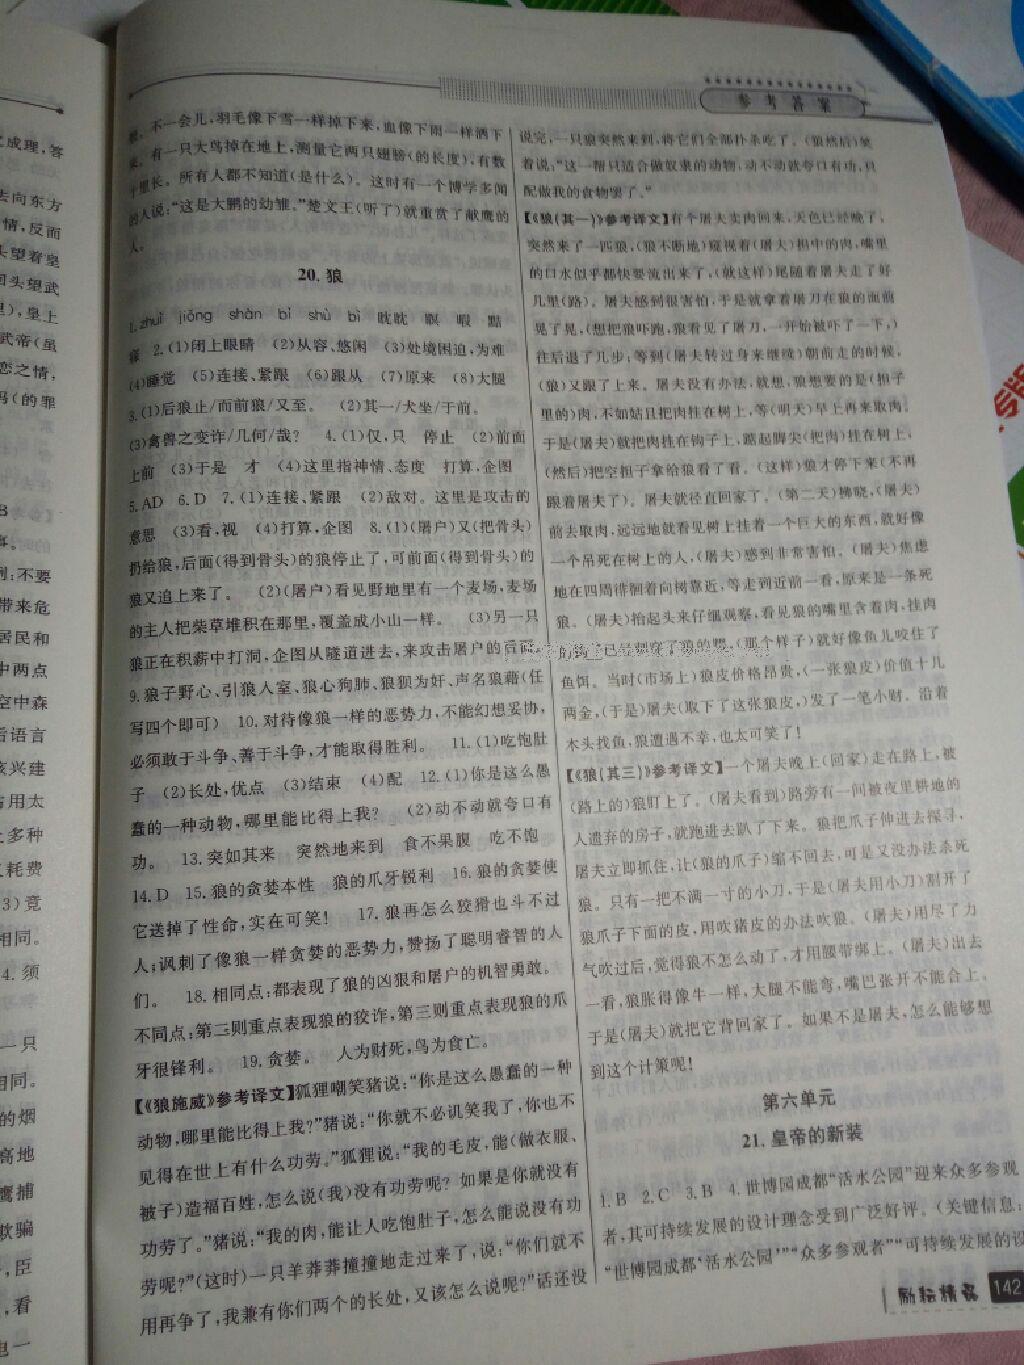 参考答案
不一会儿,羽毛像下雪一样掉下来,血像下雨一样洒下
来。有一只大鸟掉在地上,测量它两只翅膀(的长度),有数
十里长。所有人都不知道(是什么)。这时有一个博学多闻
的人说:“这是大鹏的幼雏。”楚文王(听了)就重赏了献鹰的
人。
20. 狼
1. zhuì jiǒng shàn bì shù bì 眈眈 瞑 暇 黠
寐 2.(1)闭上眼睛 (2)从容、悠闲 (3)处境困迫,为难
(4)睡觉 (5)连接、紧跟 (6)跟从 (7)原来 (8)大腿
3.(1)后狼止/而前狼/又至。 (2)其一/犬坐/于前。
(3)禽兽之变诈/几何/哉? 4.(1)仅,只 停止 (2)前面
上前 (3)于是 才 (4)这里指神情、态度 打算,企图
5. AD 6. D 7.(1)连接、紧跟 (2)敌对。这里是攻击的
意思 (3)看,视 (4)打算,企图 8.(1)(屠户)又(把骨头)
扔给狼,后面(得到骨头)的狼停止了,可前面(得到骨头)的
狼又追上来了。 (2)(屠户)看见野地里有一个麦场,麦场
的主人把柴草堆积在那里,覆盖成小山一样。 (3)另一只
狼正在积薪中打洞,企图从隧道进去,来攻击屠户的后面。
9. 狼子野心、引狼入室、狼心狗肺、狼狈为奸、声名狼藉(任
写四个即可) 10. 对待像狼一样的恶势力,不能幻想妥协,
必须敢于斗争、善于斗争,才能取得胜利。 11.(1)吃饱肚
子 (2)长处,优点 (3)结束 (4)配 12.(1)你是这么愚
蠢的一种动物,哪里能比得上我? (2)动不动就夸口有
功。 13. 突如其来 突然地来到 食不果腹 吃不饱
14. D 15. 狼的贪婪本性 狼的爪牙锐利 16. 狼的贪婪使
它送掉了性命,实在可笑! 17. 狼再怎么狡猾也斗不过
人;讽刺了像狼一样贪婪的恶势力,赞扬了聪明睿智的人
们。 18. 相同点:都表现了狼的凶狠和屠户的机智勇敢。
不同点:第二则重点表现狼的狡诈,第三则重点表现狼的爪
牙很锋利。 19. 贪婪。 人为财死,鸟为食亡。
【《狼施威》参考译文】狐狸嘲笑猪说:“你是这么愚蠢的一种
动物,哪里能比得上我?”猪说:“你就不必讥笑我了,你也不
见得在世上有什么功劳。”狐狸说:“我的毛皮,能(做衣服、
被子)造福百姓,怎么说(我)没有功劳呢? 如果是你就没有
功劳了。”猪说:“我的肉,能让人吃饱肚子,怎么能说没有功
劳呢?”(这时)一只羊莽莽撞撞地走过来了,说:“你们就不
用再争了,我兼有你们两个的长处,又该怎么说呢?”话还没
说完,一只狼突然来到,将它们全部扑杀吃了。(狼然后)笑
着说:“这一帮只适合做奴隶的动物,动不动就夸口有功,只
配做我的食物罢了。”
【《狼(其一)》参考译文】有个屠夫卖肉回来,天色已经晚了。
突然来了一匹狼,(狼不断地)窥视着(屠夫)担中的肉,嘴里
的口水似乎都快要流出来了,(就这样)尾随着屠夫走了好
几里(路)。屠夫感到很害怕,于是就拿着屠刀在狼的面前
晃了晃,(想把狼吓跑,狼看见了屠刀,一开始被吓了一下,)
往后退了几步;等到(屠夫转过身来继续)朝前走的时候,
(狼)又跟了上来。屠夫没有办法,就想,狼想要的是(担子
里的)肉,不如姑且把肉挂在树上,等(明天)早上再来取肉。
于是(屠夫)就把肉挂在钩子上,踮起脚尖(把肉)挂在树上,
(然后)把空担子拿给狼看了看。(这样)狼才停下来(不再
跟着屠夫了)。屠夫就径直回家了。(第二天)拂晓,(屠夫)
前去取肉,远远地就看见树上挂着一个巨大的东西,就好像
一个吊死在树上的人,(屠夫)感到非常害怕。(屠夫)焦虑
地在四周徘徊着向树靠近,等走到近前一看,原来是一条死
狼。(屠夫)抬起头来仔细观察,看见狼的嘴里含着肉,挂肉
的钩子已经刺穿了狼的腭,(那个样子)就好像鱼儿咬住了
鱼饵。当时(市场上)狼皮价格昂贵,(一张狼皮)价值十几
两金,(于是)屠夫(取下了这张狼皮,)发了一笔小财。沿着
木头找鱼,狼遭遇不幸,也太可笑了!
【《狼(其三)》参考译文】一个屠夫晚上(回家)走在路上,被
(路上的)狼盯上了。(屠夫看到)路旁有一间被夜里耕地的
人遗弃的房子,就跑进去趴了下来。狼把爪子伸进去探寻,
屠夫立即抓住,让(狼的爪子)缩不回去,可是又没办法杀死
狼。只有一把不满一寸的小刀,于是(屠夫用小刀)割开了
狼爪子下面的皮,用吹猪皮的办法吹狼。(屠夫)用尽了力
气吹过后,觉得狼不怎么动了,才用腰带绑上。(屠夫)出去
一看,狼胀得像牛一样,大腿不能弯,嘴巴张开不能合上。
于是(屠夫)就把它背回家了。如果不是屠夫,怎么能够想
到这个计策呢!
第六单元
21. 皇帝的新装
1. B 2. C 3. B 4. 世博园成都“活水公园”迎来众多参观
者,其可持续发展的设计理念受到广泛好评。(关键信息:
“世博园成都‘活水公园’”“众多参观者”“可持续发展的设
励耘精品 142